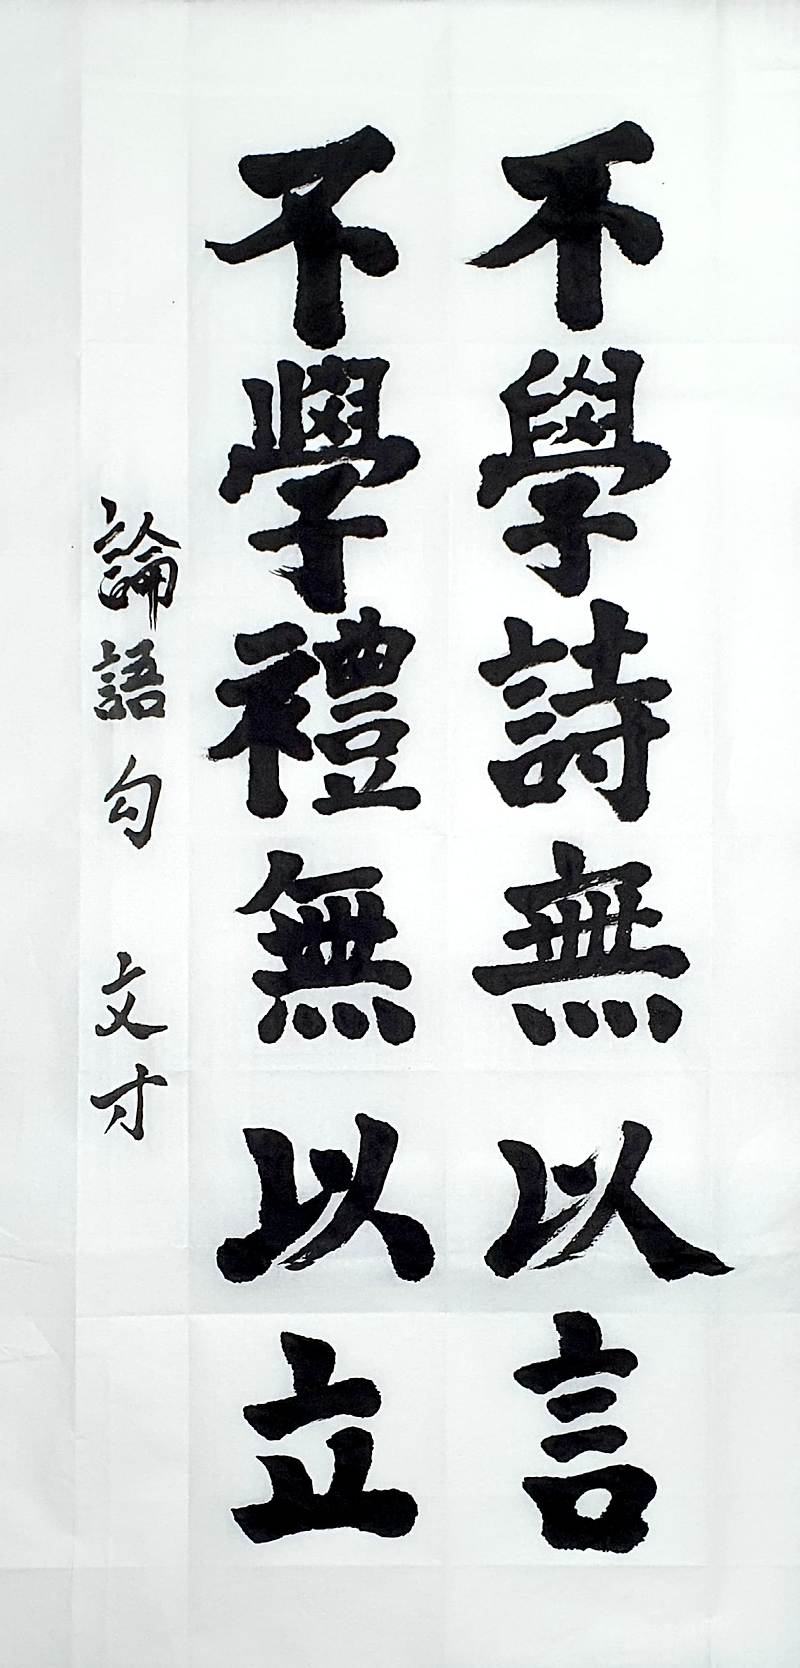 不學詩無以言
不學禮無以立
論語句 文才